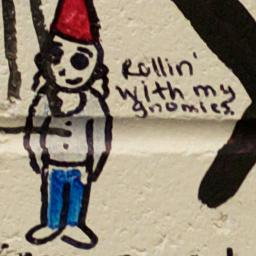 Rollin'
with my
gnomies